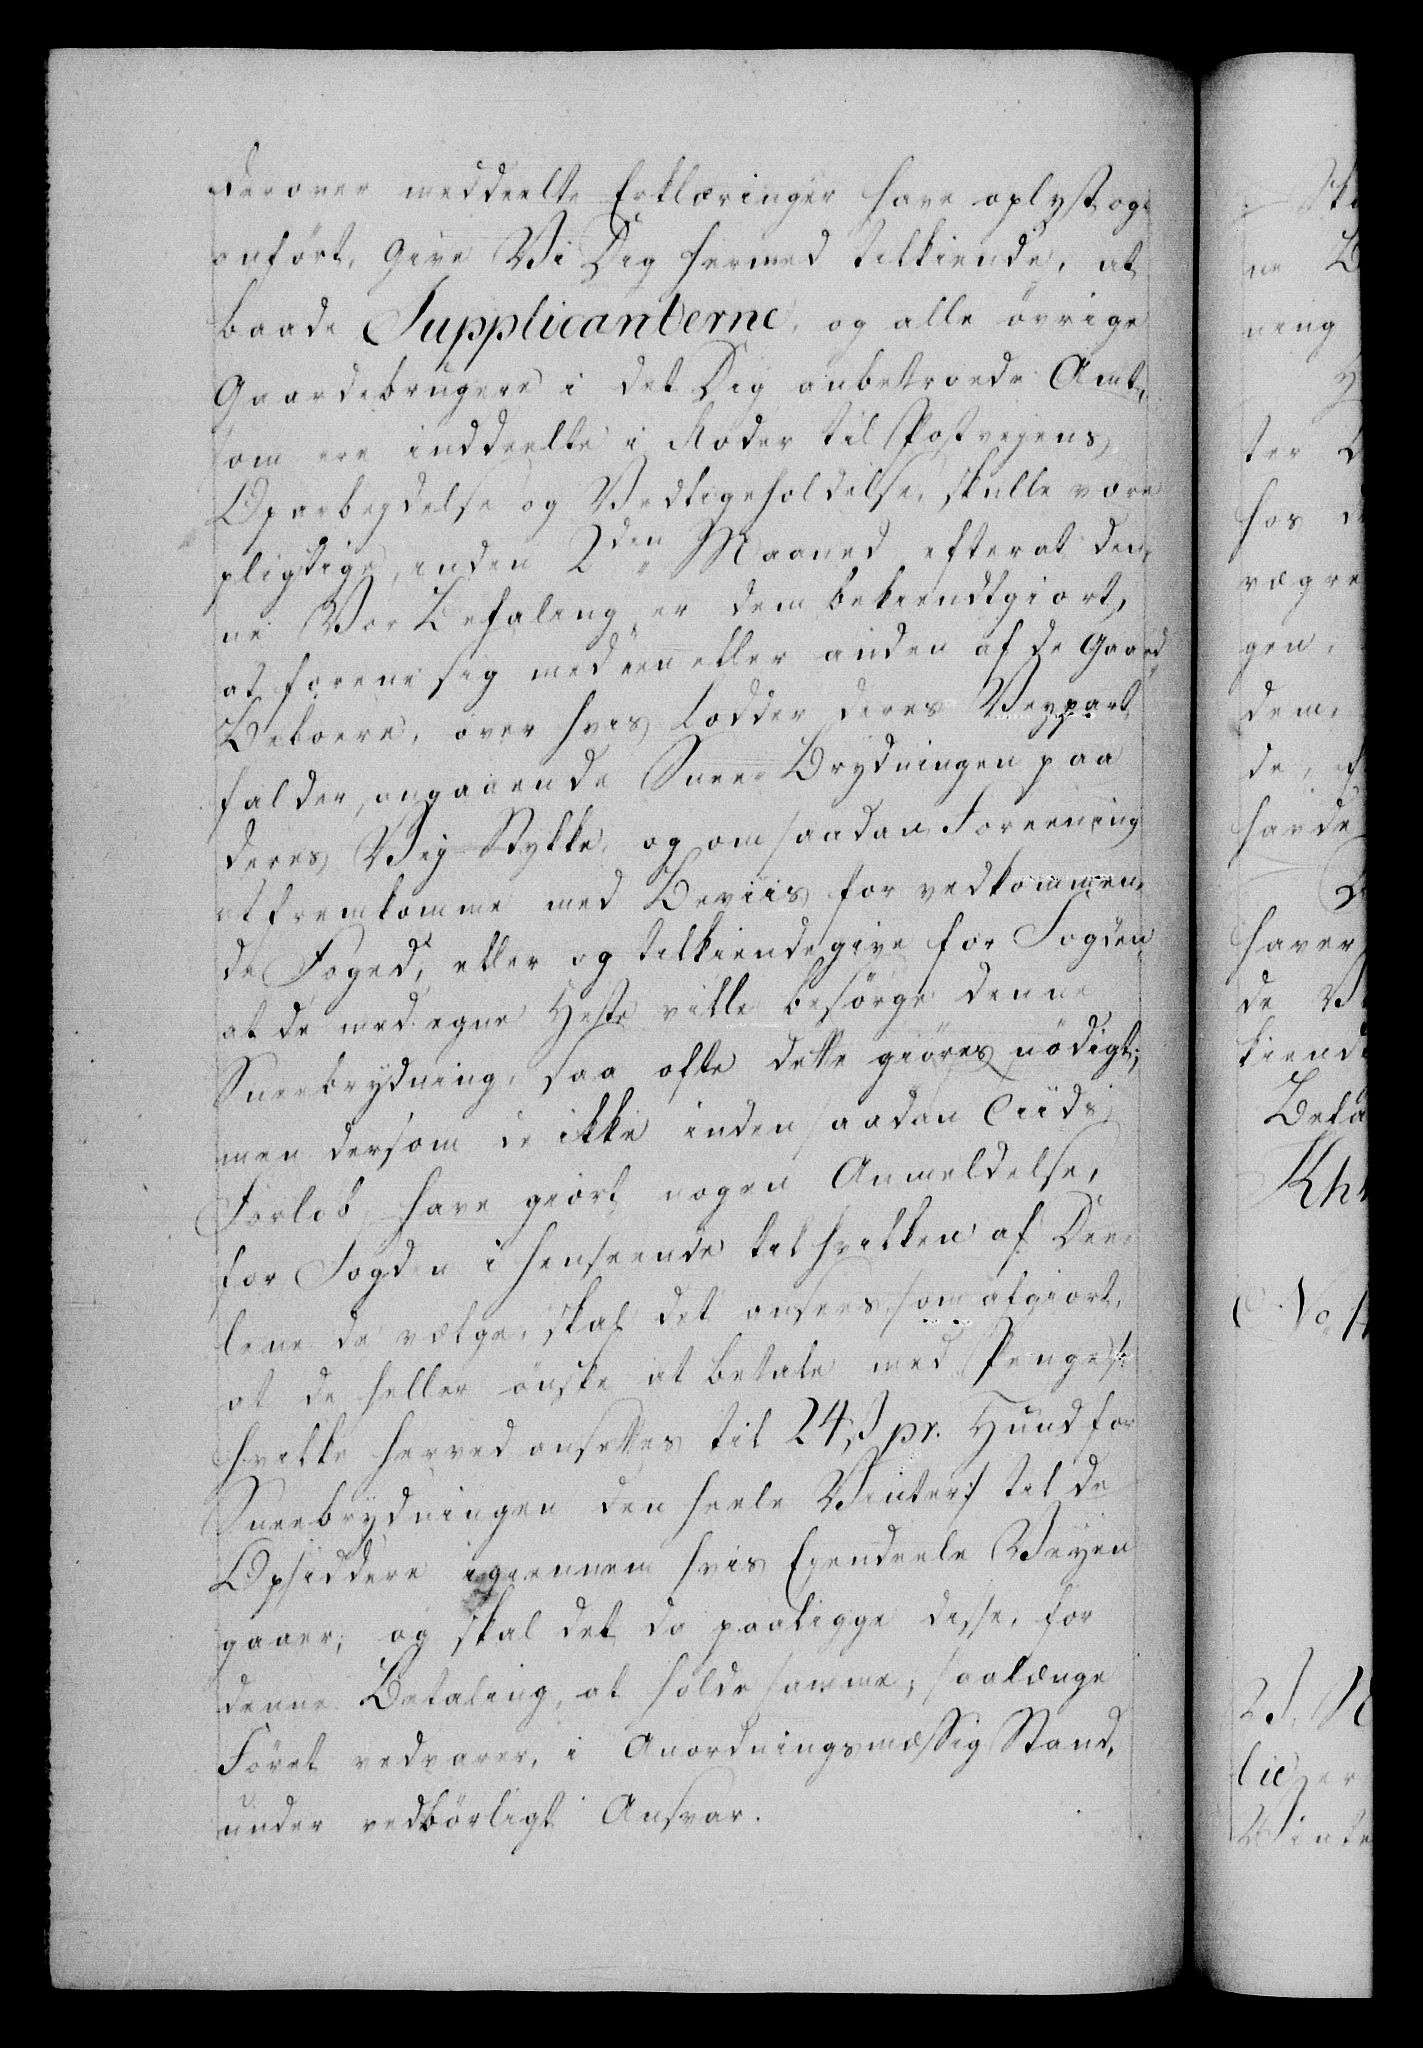 derover meddeelte Erklæringer have oplyst og
anført, Give Vi Dig hermed tilkiende, at
baade Supplicanterne, og alle øvrige
Gaardebrugere i det Dig anbetroede Amt,
som ere inddeelte i Roder til Postveyens
Oparbeydelse og Vedligeholdelse, skulle være
pligtige, inden 2den Maaned efterat den„
ne Vor Befaling er dem bekiendtgiort,
at forene sig med een eller anden af de Gaard„
Beboere, over hvis Lodder deres Veypart
falder, angaaende Snee-Brydningen paa
deres Vej-Stykke, og om saadan Foreening
at fremkomme med Beviis for vedkommen„
de Foged, eller og tilkiendegive for Fogden
at de med egne Heste ville besørge denne
Sneebrydning, saa ofte dette giøres nødigt;
men dersom de ikke inden saadan Tiids
Forløb have giort nogen Anmeldelse,
for Fogden i Henseende til hvilken af Dee„
lene de vælge, skal det ansees som afgiort,
at de heller ønske at betale med Penge /:
hvilke herved ansettes til 24 s pr. Hund for
Sneebrydningen den heele Vinter :/ til de
Opsiddere igiennem hvis Eyendeele Veyen
gaaer; og skal det da paaligge disse, for
denne Betaling, at holde samme, saalænge
Føret vedvarer, i Anordningsmæssig Stand,
under vedbørligt Ansvar.
ne
ning
ter
hos
vægre
gen,
dem,
de,
havde
haver
de
kiende
Beta
Khr
No
Vinte